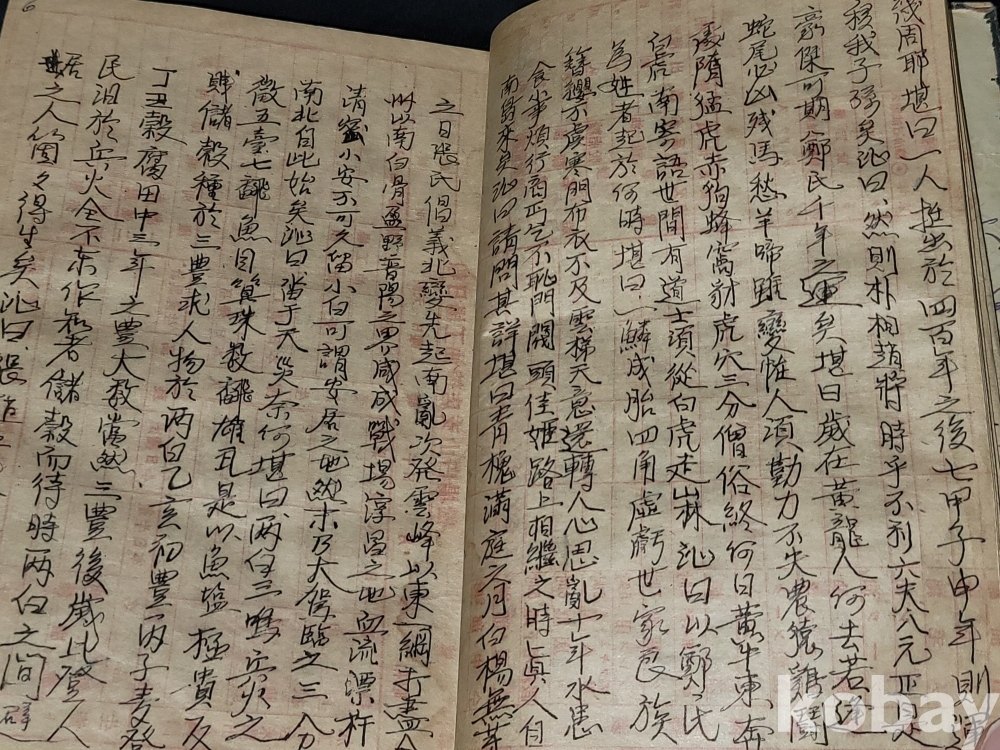 幾周耶堪曰一人挺出於四百年之後七甲子申年則
移我子孫矣沁曰然則朴相趙將時乎不利六夫八元正是
豪傑可期鄭民千年之運矣堪曰歲在黃龍人何去若
蛇尾必凶残馬愁羊啼雖變惟人須勤力不失農猿鷄鬪
隋猛虎赤狗蜂窩豺虎穴三分僧俗終何日黃牛東奔
白虎南寄語世間有道士須從白虎走山林沁曰以鄭氏
為姓者起於何時堪曰一鱗成胎四角虛虧世家良族
簪纓不處寒門布衣不及雲梯天意還轉人心思亂十年水患
食半煩行商丐乞不恥門閥頭佳姬路上相繼之時眞人自
南將來矣沁曰請問其詳堪曰靑槐滿庭之月白楊無芽
之日張氏倡義北變先起南亂次發雲峰以東一網打盡
以南白骨盈野晋陽之界咸成戰場淳昌之地血流漂杵
淸小安不可久留小白可謂安居之地然未乃大駕臨之三分
南北自此始矣沁曰當于天災奈何堪曰兩白三鳴穴之
散五臺七魚目算珠数雄丑是以魚塩極貴反
賤儲穀種於三豊求人物於两白乙亥初豊丙子麦登
丁丑穀腐田中三年之豊大数當然三豊後歲比登人
民沮於兵火全不東作智者儲穀而待時两白之間
居之人箇々得生矣沁曰張
kobay